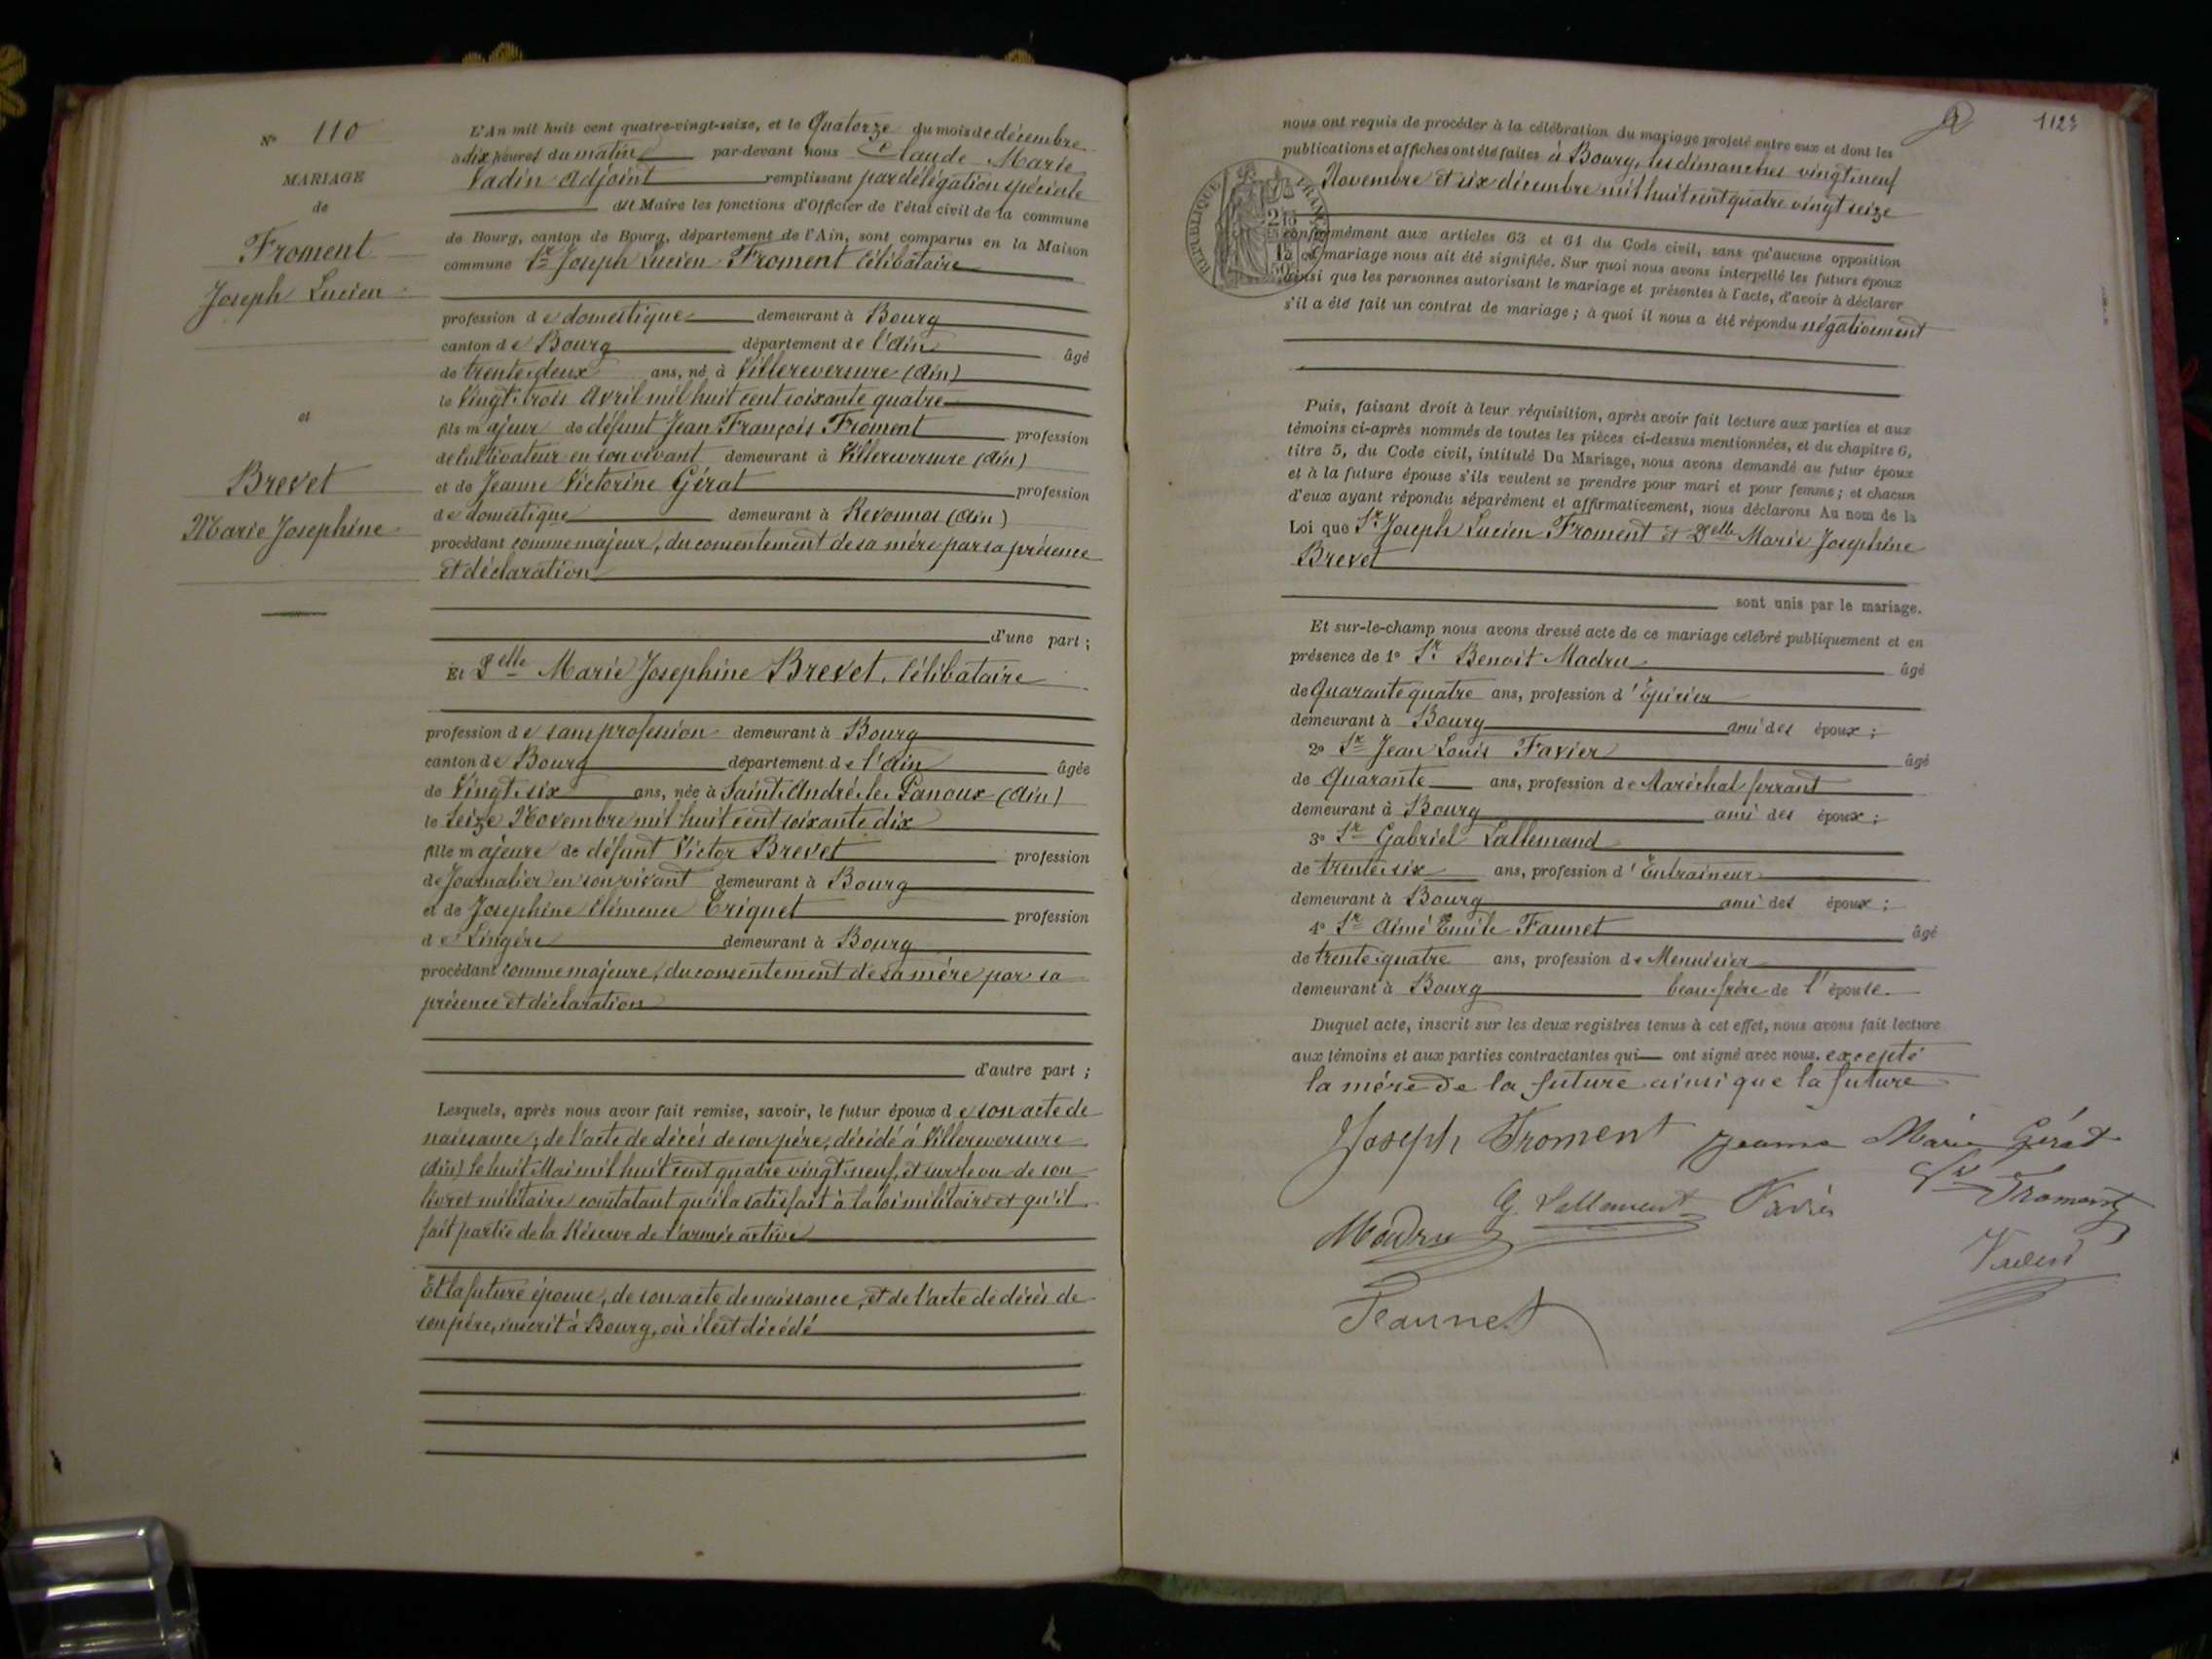 N° 110
MARIAGE
de
Froment
Joseph Lucien
et
Brevet
Marie Josephine
L'An mil huit cent quatre-vingt-seize, et le Quatorze du mois de décembre
à dix heures du matin par-devant nous Claude Marie
Vadin Adjoint remplissant par délégation spéciale
du Maire les fonctions d'Officier de l'état civil de la commune
de Bourg, canton de Bourg, département de l'Ain, sont comparus en la Maison
commune Sr Joseph Lucien Froment Célibataire
profession de domestique demeurant à Bourg
canton de Bourg département de l'Ain âgé
de trente deux ans, né à Villereversure (Ain)
le Vingt trois Avril mil huit cent soixante quatre
fils majeur de défunt Jean François Froment profession
de Cultivateur en son vivant demeurant à Villereversure (Ain)
et de Jeanne Victorine Gérat profession
de domestique demeurant à Revonnas (Ain)
procédant comme majeur, du consentement de sa mère par sa présence
et déclaration
d'une part ;
Et Delle Marie Josephine Brevet, Célibataire
profession de sans profession demeurant à Bourg
canton de Bourg département de l'Ain âgée
de Vingt six ans, née à Saint André le Panoux (Ain)
le Seize Novembre mil huit cent soixante dix
fille majeure de défunt Victor Brevet profession
de Journalier en son vivant demeurant à Bourg
et de Josephine Clémence Triquet profession
de Lingère demeurant à Bourg
procédant comme majeure, du consentement de sa mère par sa
présence et déclaration
d'autre part ;
Lesquels, après nous avoir fait remise, savoir, le futur époux de son acte de
naissance ; de l'acte de décès de son père, décédé à Villereversure
(Ain) le huit Mai mil huit cent quatre vingt neuf, et sur le vu de son
livret militaire constatant qu'il a satisfait à la loi militaire et qu'il
fait partie de la Réserve de l'armée active
Et la future épouse, de son acte de naissance, et de l'acte de décès de
son père, inscrit à Bourg, où il est décédé
112
nous ont requis de procéder à la célébration du mariage projeté entre eux et dont les
publications et affiches ont été faites à Bourg, les dimanches vingt neuf
Novembre et six décembre mil huit cent quatre vingt seize
RÉPUBLIQUE FRANÇAISE
conformément aux articles 63 et 64 du Code civil, sans qu'aucune opposition
au mariage nous ait été signifiée. Sur quoi nous avons interpellé les futurs époux
ainsi que les personnes autorisant le mariage et présentes à l'acte, d'avoir à déclarer
s'il a été fait un contrat de mariage ; à quoi il nous a été répondu négativement
Puis, faisant droit à leur réquisition, après avoir fait lecture aux parties et aux
témoins ci-après nommés de toutes les pièces ci-dessus mentionnées, et du chapitre 6,
titre 5, du Code civil, intitulé Du Mariage, nous avons demandé au futur époux
et à la future épouse s'ils veulent se prendre pour mari et pour femme ; et chacun
d'eux ayant répondu séparément et affirmativement, nous déclarons Au nom de la
Loi que Sr Joseph Lucien Froment et Delle Marie Josephine
Brevet
sont unis par le mariage.
Et sur-le-champ nous avons dressé acte de ce mariage célébré publiquement et en
présence de 1° Sr Benoit Madru âgé
de Quarante quatre ans, profession d'Épicier
demeurant à Bourg ami des époux ;
2° Sr Jean Louis Favier âgé
de Quarante ans, profession de Maréchal ferrant
demeurant à Bourg ami des époux ;
3° Sr Gabriel Lallemand
de trente six ans, profession d'Entraineur
demeurant à Bourg ami des époux ;
4° Sr Aimé Emile Faunet âgé
de trente quatre ans, profession de Menuisier
demeurant à Bourg beau-frère de l'épouse.
Duquel acte, inscrit sur les deux registres tenus à cet effet, nous avons fait lecture
aux témoins et aux parties contractantes qui ont signé avec nous. excepté
la mère de la future ainsi que la future
Joseph Froment Jeanne Marie Gérat
Ve Froment
G. Lallemand Favier
Madru
Vadin
Faunet